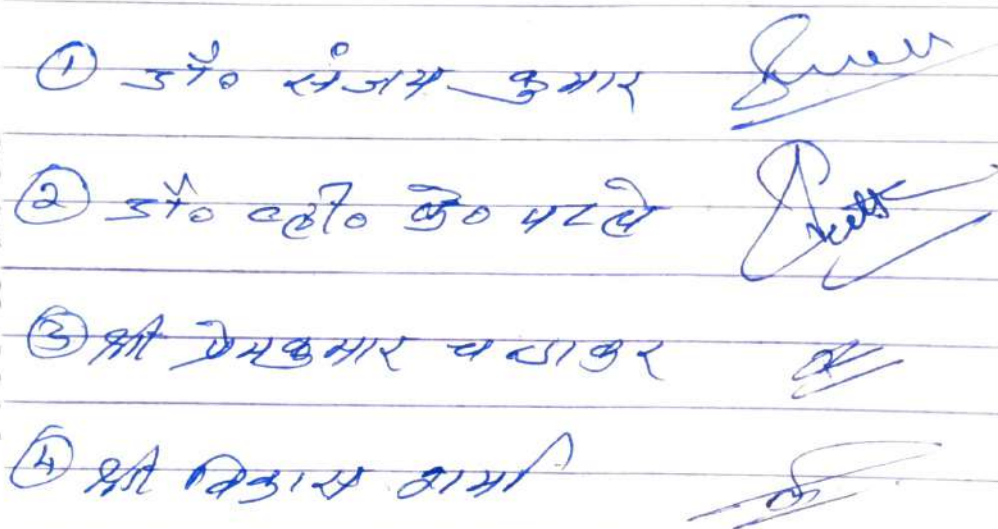 ① डॉ० संजय कुमार
② डॉ० व्ही० के० पटले
③ श्री प्रेमकुमार चन्द्राकर
④ श्री विकास शर्मा